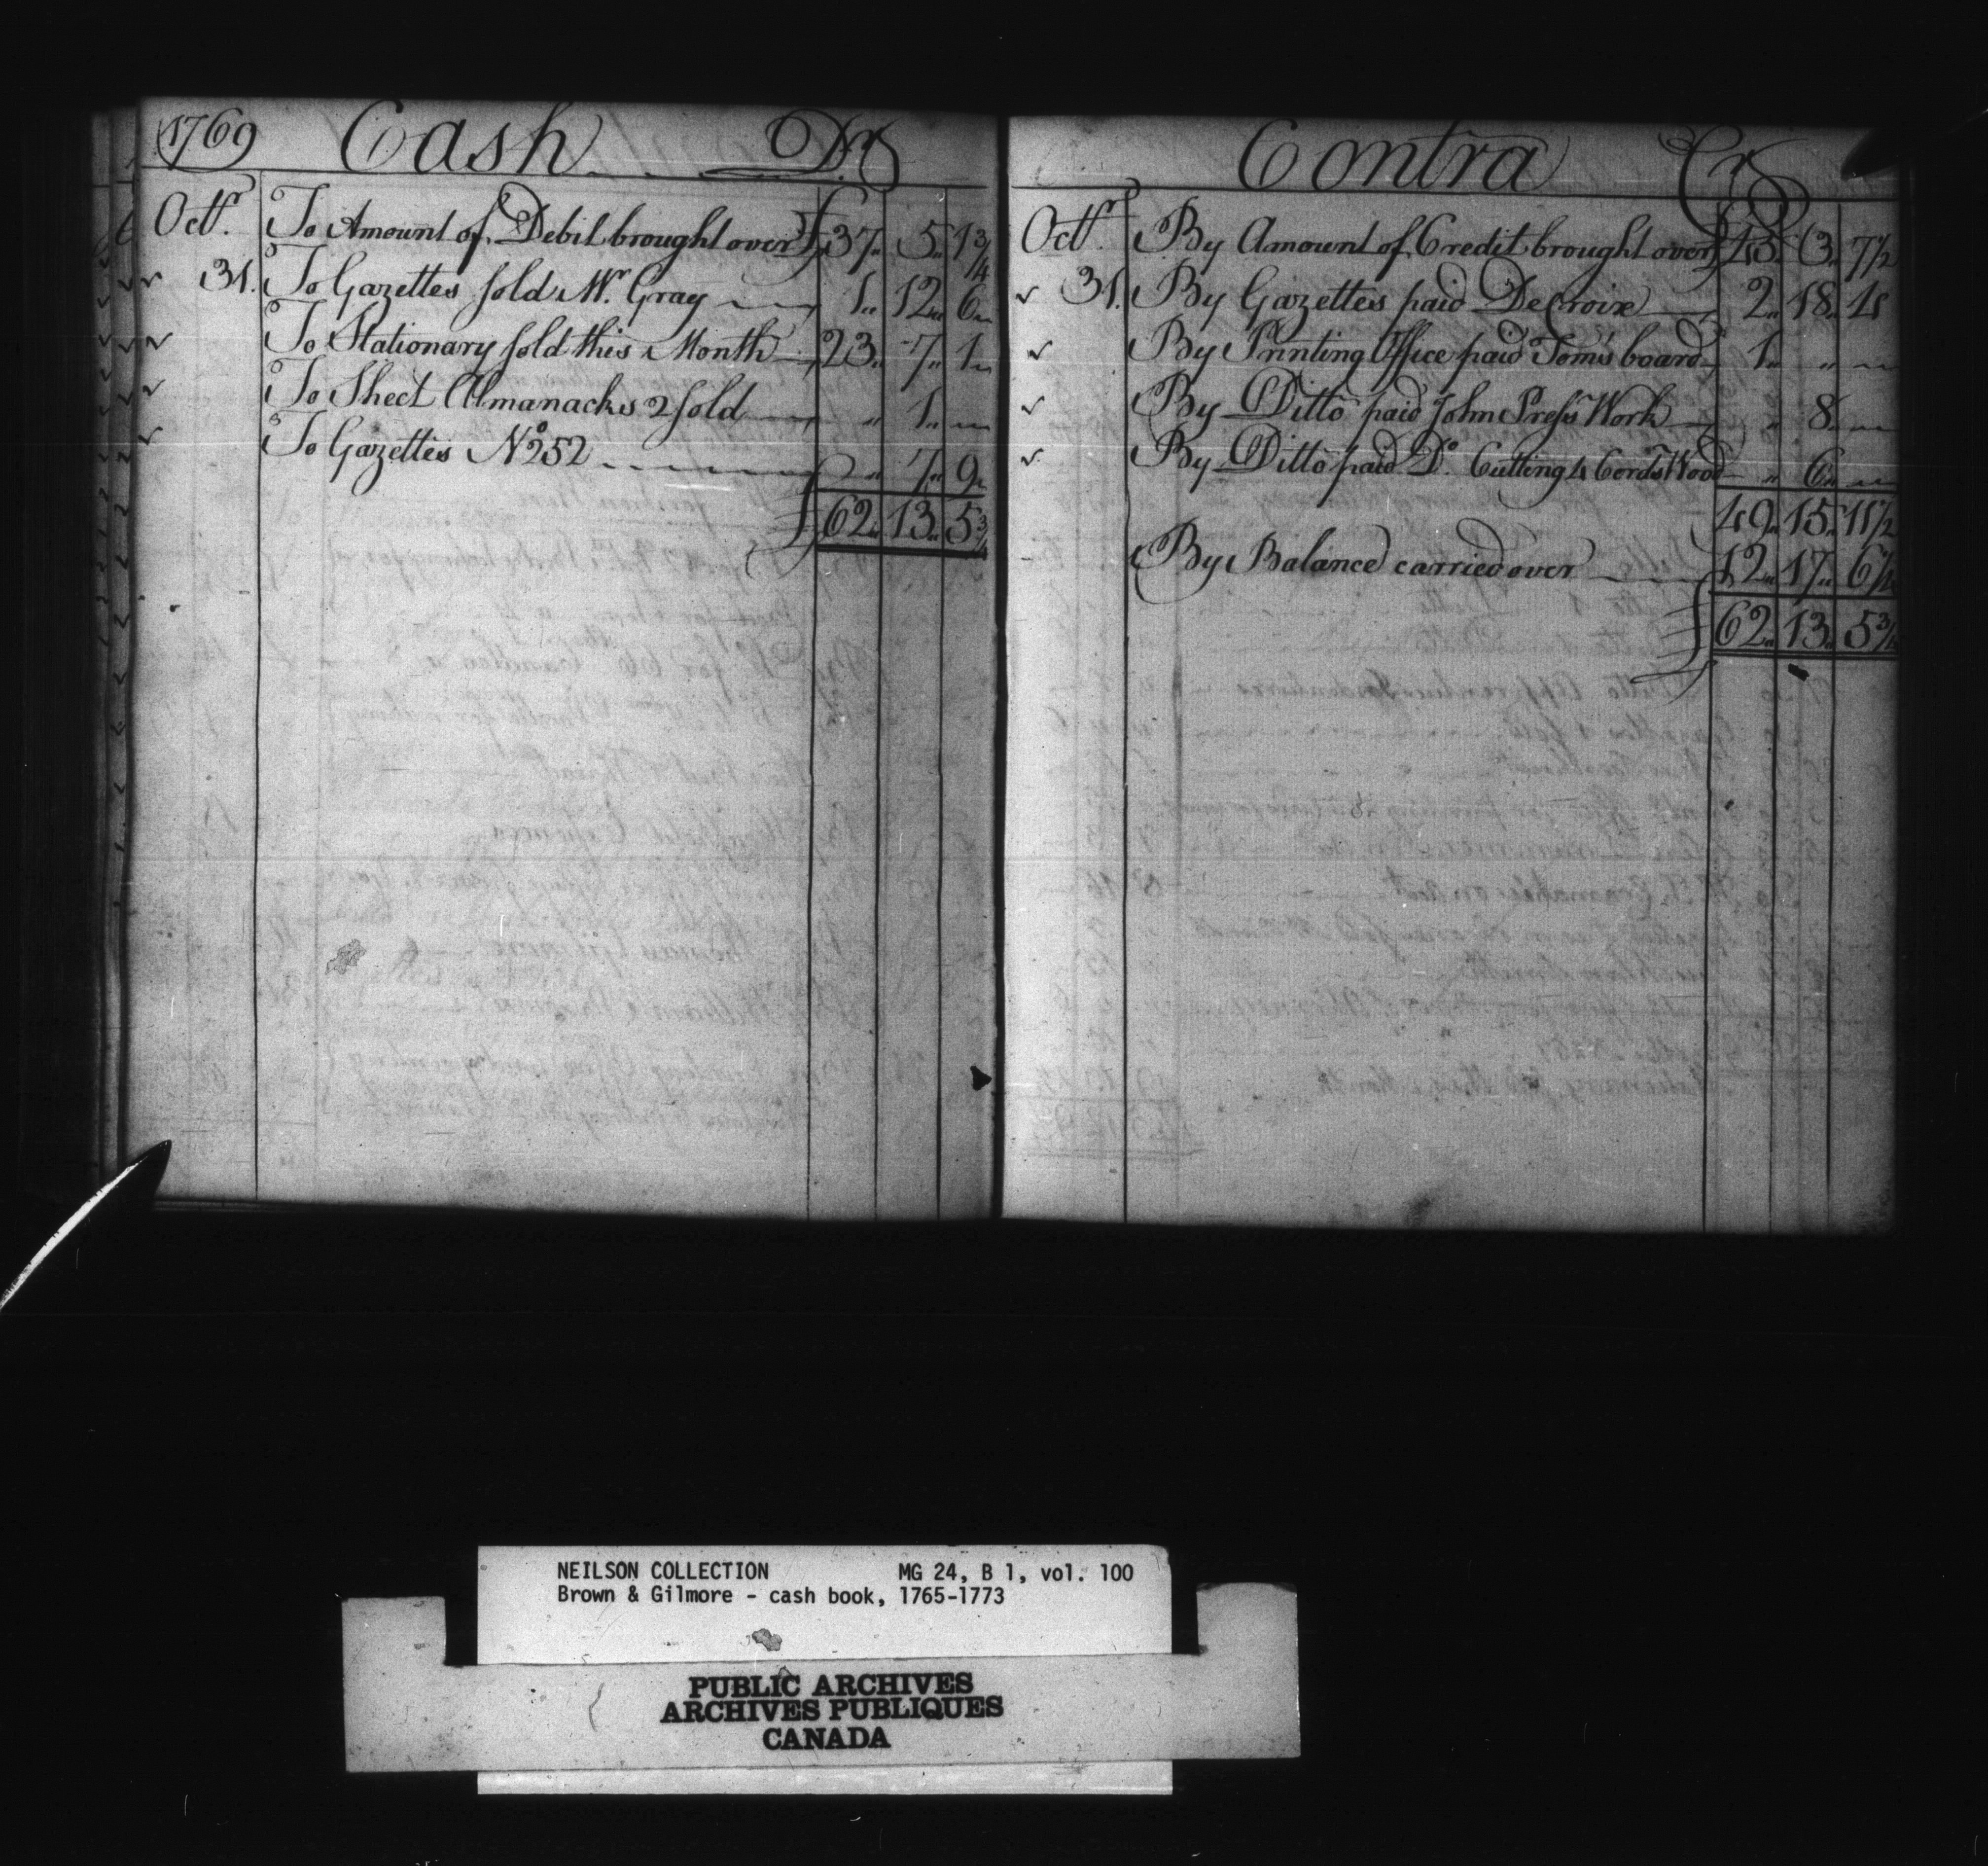 1769 Cash Dr
Octr. To Amount of Debit brought over £ 37 " 5 " 1 3/4
31. To Gazettes sold Mr. Gray 1 " 12 " 6
To Stationary sold this Month 23 " 7 " 1
To Sheet Almanacks 2 sold " 1 "
To Gazettes No 252 " 7 " 9
£ 62 " 13 " 5 3/4
Contra Cr
Octr. By Amount of Credit brought over £ 45 " 3 " 7 1/2
31. By Gazettes paid DeCroix 2 " 18 " 4
By Printing Office paid Tom's board 1 " "
By Ditto paid John Press Work " 8 "
By Ditto paid Do. Cutting 4 Cords Wood " 6 "
49 " 15 " 11 1/2
By Balance carried over 12 " 17 " 6 1/4
£ 62 " 13 " 5 3/4
NEILSON COLLECTION MG 24, B 1, vol. 100
Brown & Gilmore - cash book, 1765-1773
PUBLIC ARCHIVES
ARCHIVES PUBLIQUES
CANADA